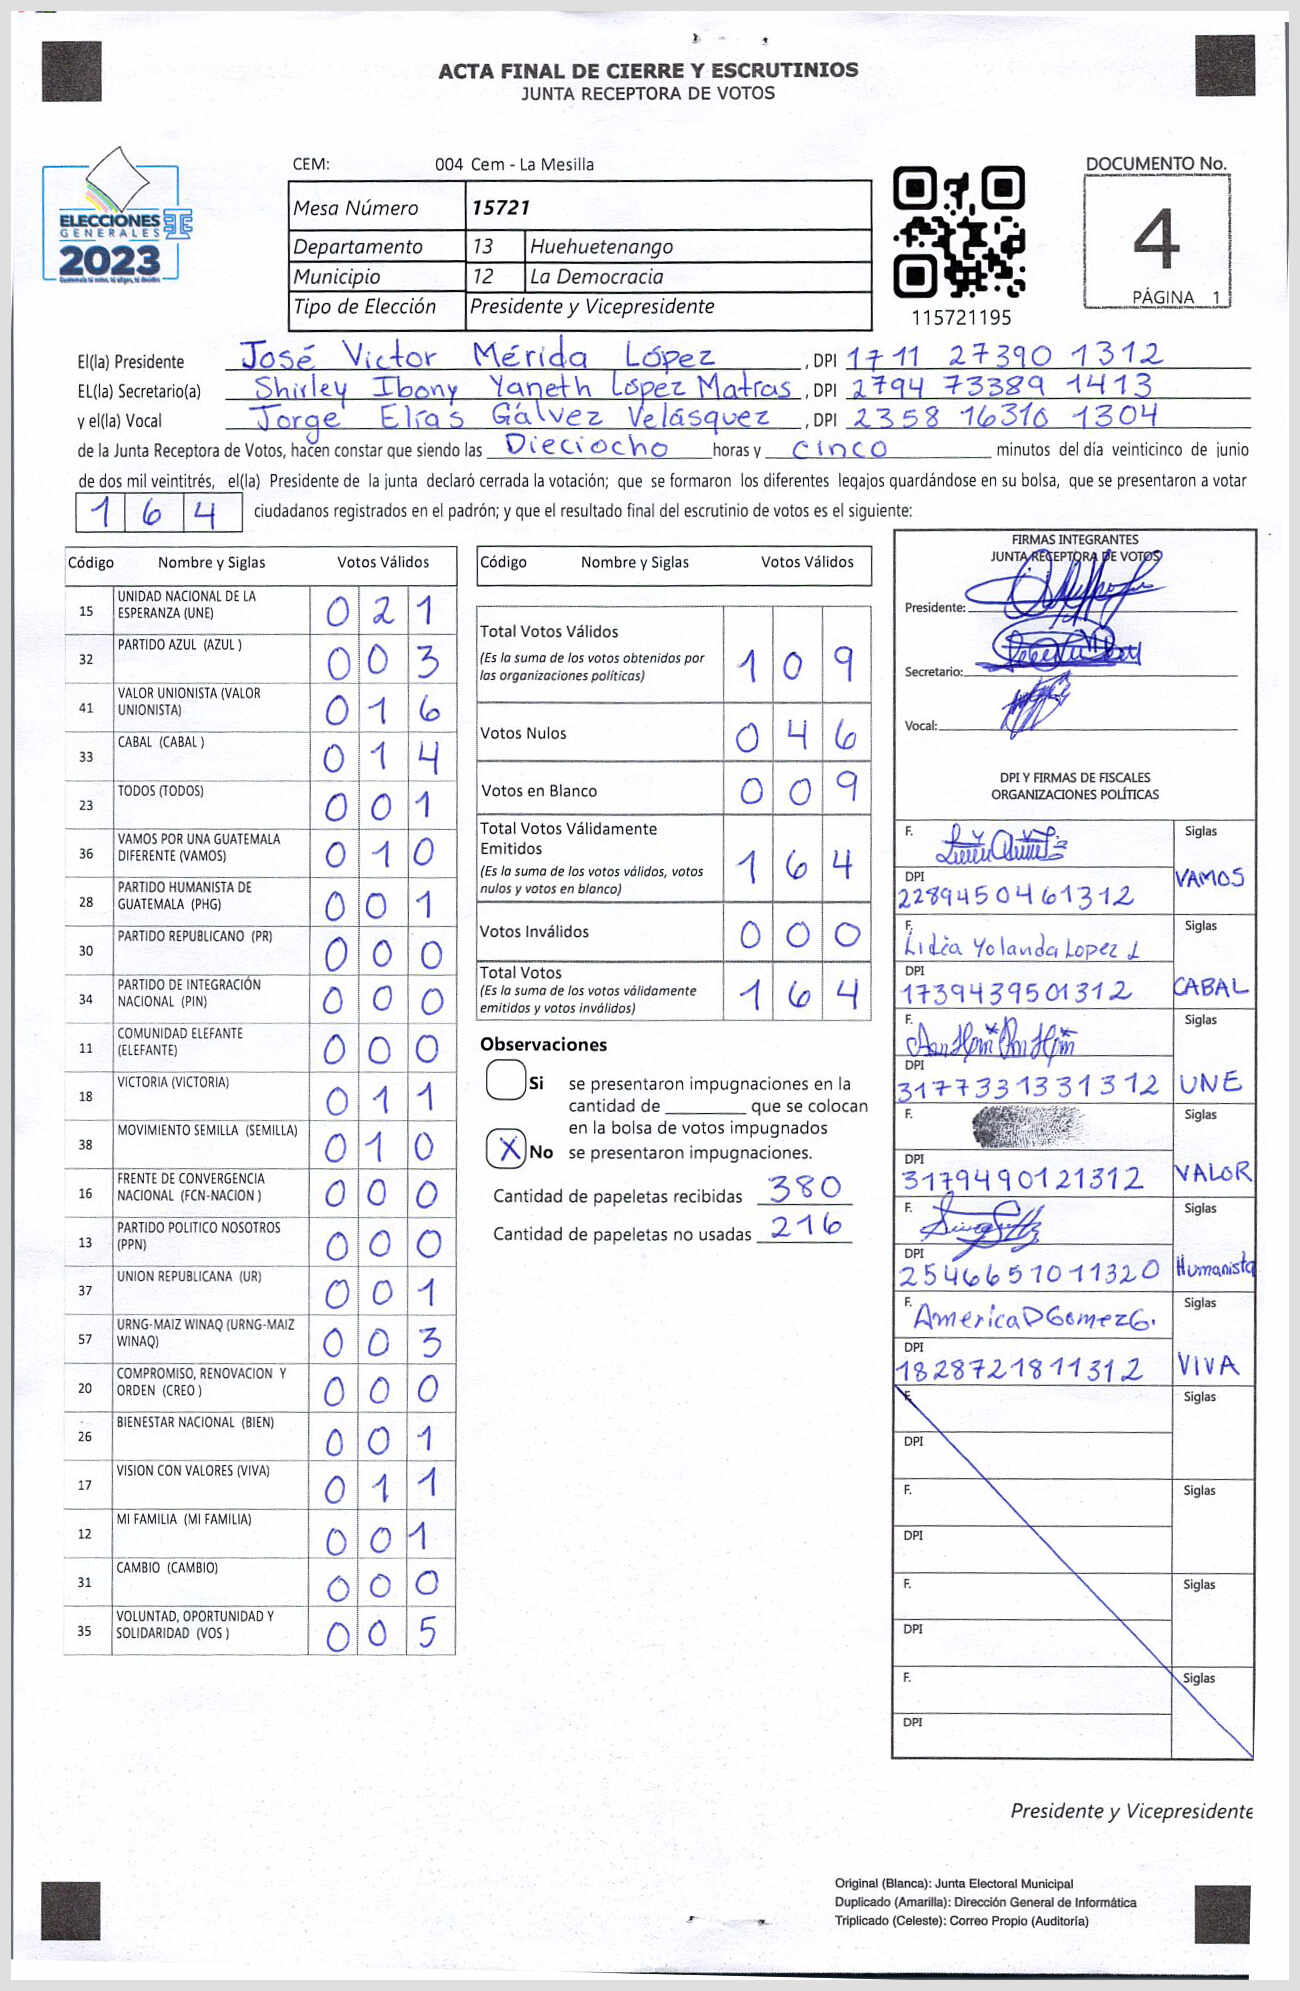 ACTA FINAL DE CIERRE Y ESCRUTINIOS
JUNTA RECEPTORA DE VOTOS
CEM: 004 Cem - La Mesilla
DOCUMENTO No.
4
PÁGINA 1
ELECCIONES
GENERALES
2023
Mesa Número 15721
Departamento 13 Huehuetenango
Municipio 12 La Democracia
Tipo de Elección Presidente y Vicepresidente
115721195
El(la) Presidente José Victor Mérida López , DPI 1711 27390 1312
EL(la) Secretario(a) Shirley Ibony Yaneth López Matras , DPI 2794 73389 1413
y el(la) Vocal Jorge Elías Gálvez Velásquez , DPI 2358 16310 1304
de la Junta Receptora de Votos, hacen constar que siendo las Dieciocho horas y cinco minutos del día veinticinco de junio
de dos mil veintitrés, el(la) Presidente de la junta declaró cerrada la votación; que se formaron los diferentes legajos guardándose en su bolsa, que se presentaron a votar
1 6 4 ciudadanos registrados en el padrón; y que el resultado final del escrutinio de votos es el siguiente:
Código Nombre y Siglas Votos Válidos
15 UNIDAD NACIONAL DE LA ESPERANZA (UNE) 0 2 1
32 PARTIDO AZUL (AZUL ) 0 0 3
41 VALOR UNIONISTA (VALOR UNIONISTA) 0 1 6
33 CABAL (CABAL ) 0 1 4
23 TODOS (TODOS) 0 0 1
36 VAMOS POR UNA GUATEMALA DIFERENTE (VAMOS) 0 1 0
28 PARTIDO HUMANISTA DE GUATEMALA (PHG) 0 0 1
30 PARTIDO REPUBLICANO (PR) 0 0 0
34 PARTIDO DE INTEGRACIÓN NACIONAL (PIN) 0 0 0
11 COMUNIDAD ELEFANTE (ELEFANTE) 0 0 0
18 VICTORIA (VICTORIA) 0 1 1
38 MOVIMIENTO SEMILLA (SEMILLA) 0 1 0
16 FRENTE DE CONVERGENCIA NACIONAL (FCN-NACION ) 0 0 0
13 PARTIDO POLITICO NOSOTROS (PPN) 0 0 0
37 UNION REPUBLICANA (UR) 0 0 1
57 URNG-MAIZ WINAQ (URNG-MAIZ WINAQ) 0 0 3
20 COMPROMISO, RENOVACION Y ORDEN (CREO ) 0 0 0
26 BIENESTAR NACIONAL (BIEN) 0 0 1
17 VISION CON VALORES (VIVA) 0 1 1
12 MI FAMILIA (MI FAMILIA) 0 0 1
31 CAMBIO (CAMBIO) 0 0 0
35 VOLUNTAD, OPORTUNIDAD Y SOLIDARIDAD (VOS ) 0 0 5
Código Nombre y Siglas Votos Válidos
Total Votos Válidos 1 0 9
(Es la suma de los votos obtenidos por
las organizaciones políticas)
Votos Nulos 0 4 6
Votos en Blanco 0 0 9
Total Votos Válidamente
Emitidos 1 6 4
(Es la suma de los votos válidos, votos
nulos y votos en blanco)
Votos Inválidos 0 0 0
Total Votos 1 6 4
(Es la suma de los votos válidamente
emitidos y votos inválidos)
Observaciones
Si se presentaron impugnaciones en la
cantidad de ________ que se colocan
en la bolsa de votos impugnados
X No se presentaron impugnaciones.
Cantidad de papeletas recibidas 380
Cantidad de papeletas no usadas 216
FIRMAS INTEGRANTES
JUNTA RECEPTORA DE VOTOS
Presidente:
Secretario:
Vocal:
DPI Y FIRMAS DE FISCALES
ORGANIZACIONES POLÍTICAS
F. Siglas
DPI VAMOS
2289450461312
F. Siglas
Lidia Yolanda Lopez L
DPI CABAL
1739439501312
F. Siglas
DPI UNE
3177331331312
F. Siglas
DPI VALOR
3179490121312
F. Siglas
DPI Humanista
2546651011320
F. Siglas
America D Gomez G.
DPI VIVA
1828721811312
F. Siglas
DPI
F. Siglas
DPI
F. Siglas
DPI
F. Siglas
DPI
Presidente y Vicepresidente
Original (Blanca): Junta Electoral Municipal
Duplicado (Amarilla): Dirección General de Informática
Triplicado (Celeste): Correo Propio (Auditoría)